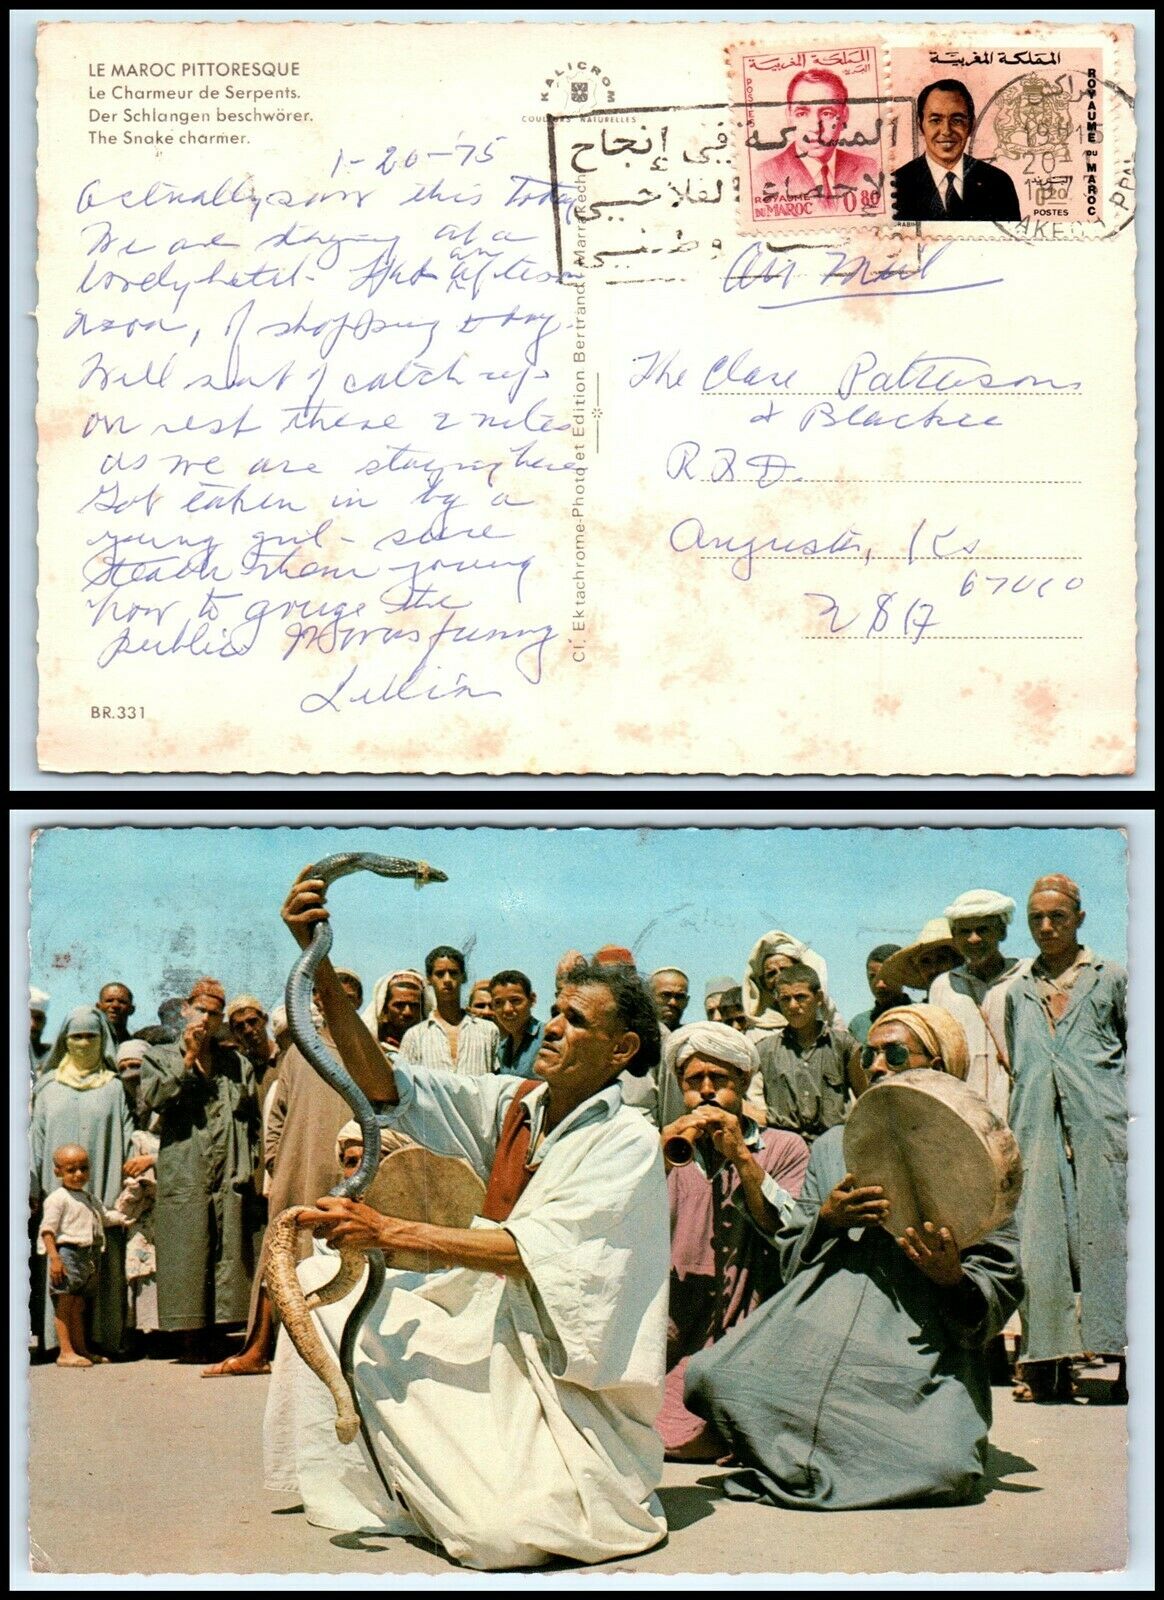 LE MAROC PITTORESQUE
Le Charmeur de Serpents.
Der Schlangen beschwörer.
The Snake charmer.
KALICROM
COULEURS NATURELLES
المملكة المغربية
البريد
POSTES
ROYAUME
DU MAROC
0.80
المملكة المغربية
ROYAUME DU MAROC
0.20
POSTES
المشاركة في إنجاح
الاحصاء الفلاحي
وطني
20
1-20-75
Actually saw this today
We are staying at a
lovely hotel. Had an after
noon, of shopping today.
Will sort of catch up
on rest these 2 nites
as we are staying here
Got taken in by a
young girl - sure
teach them young
how to gouge the
public. It was funny
Lillian
BR.331
Cl. Ektachrome-Photo et Edition Bertrand, Marrakech
Air Mail
The Clare Pattersons
& Blackie
R.F.D.
Augusta, Ks
67010